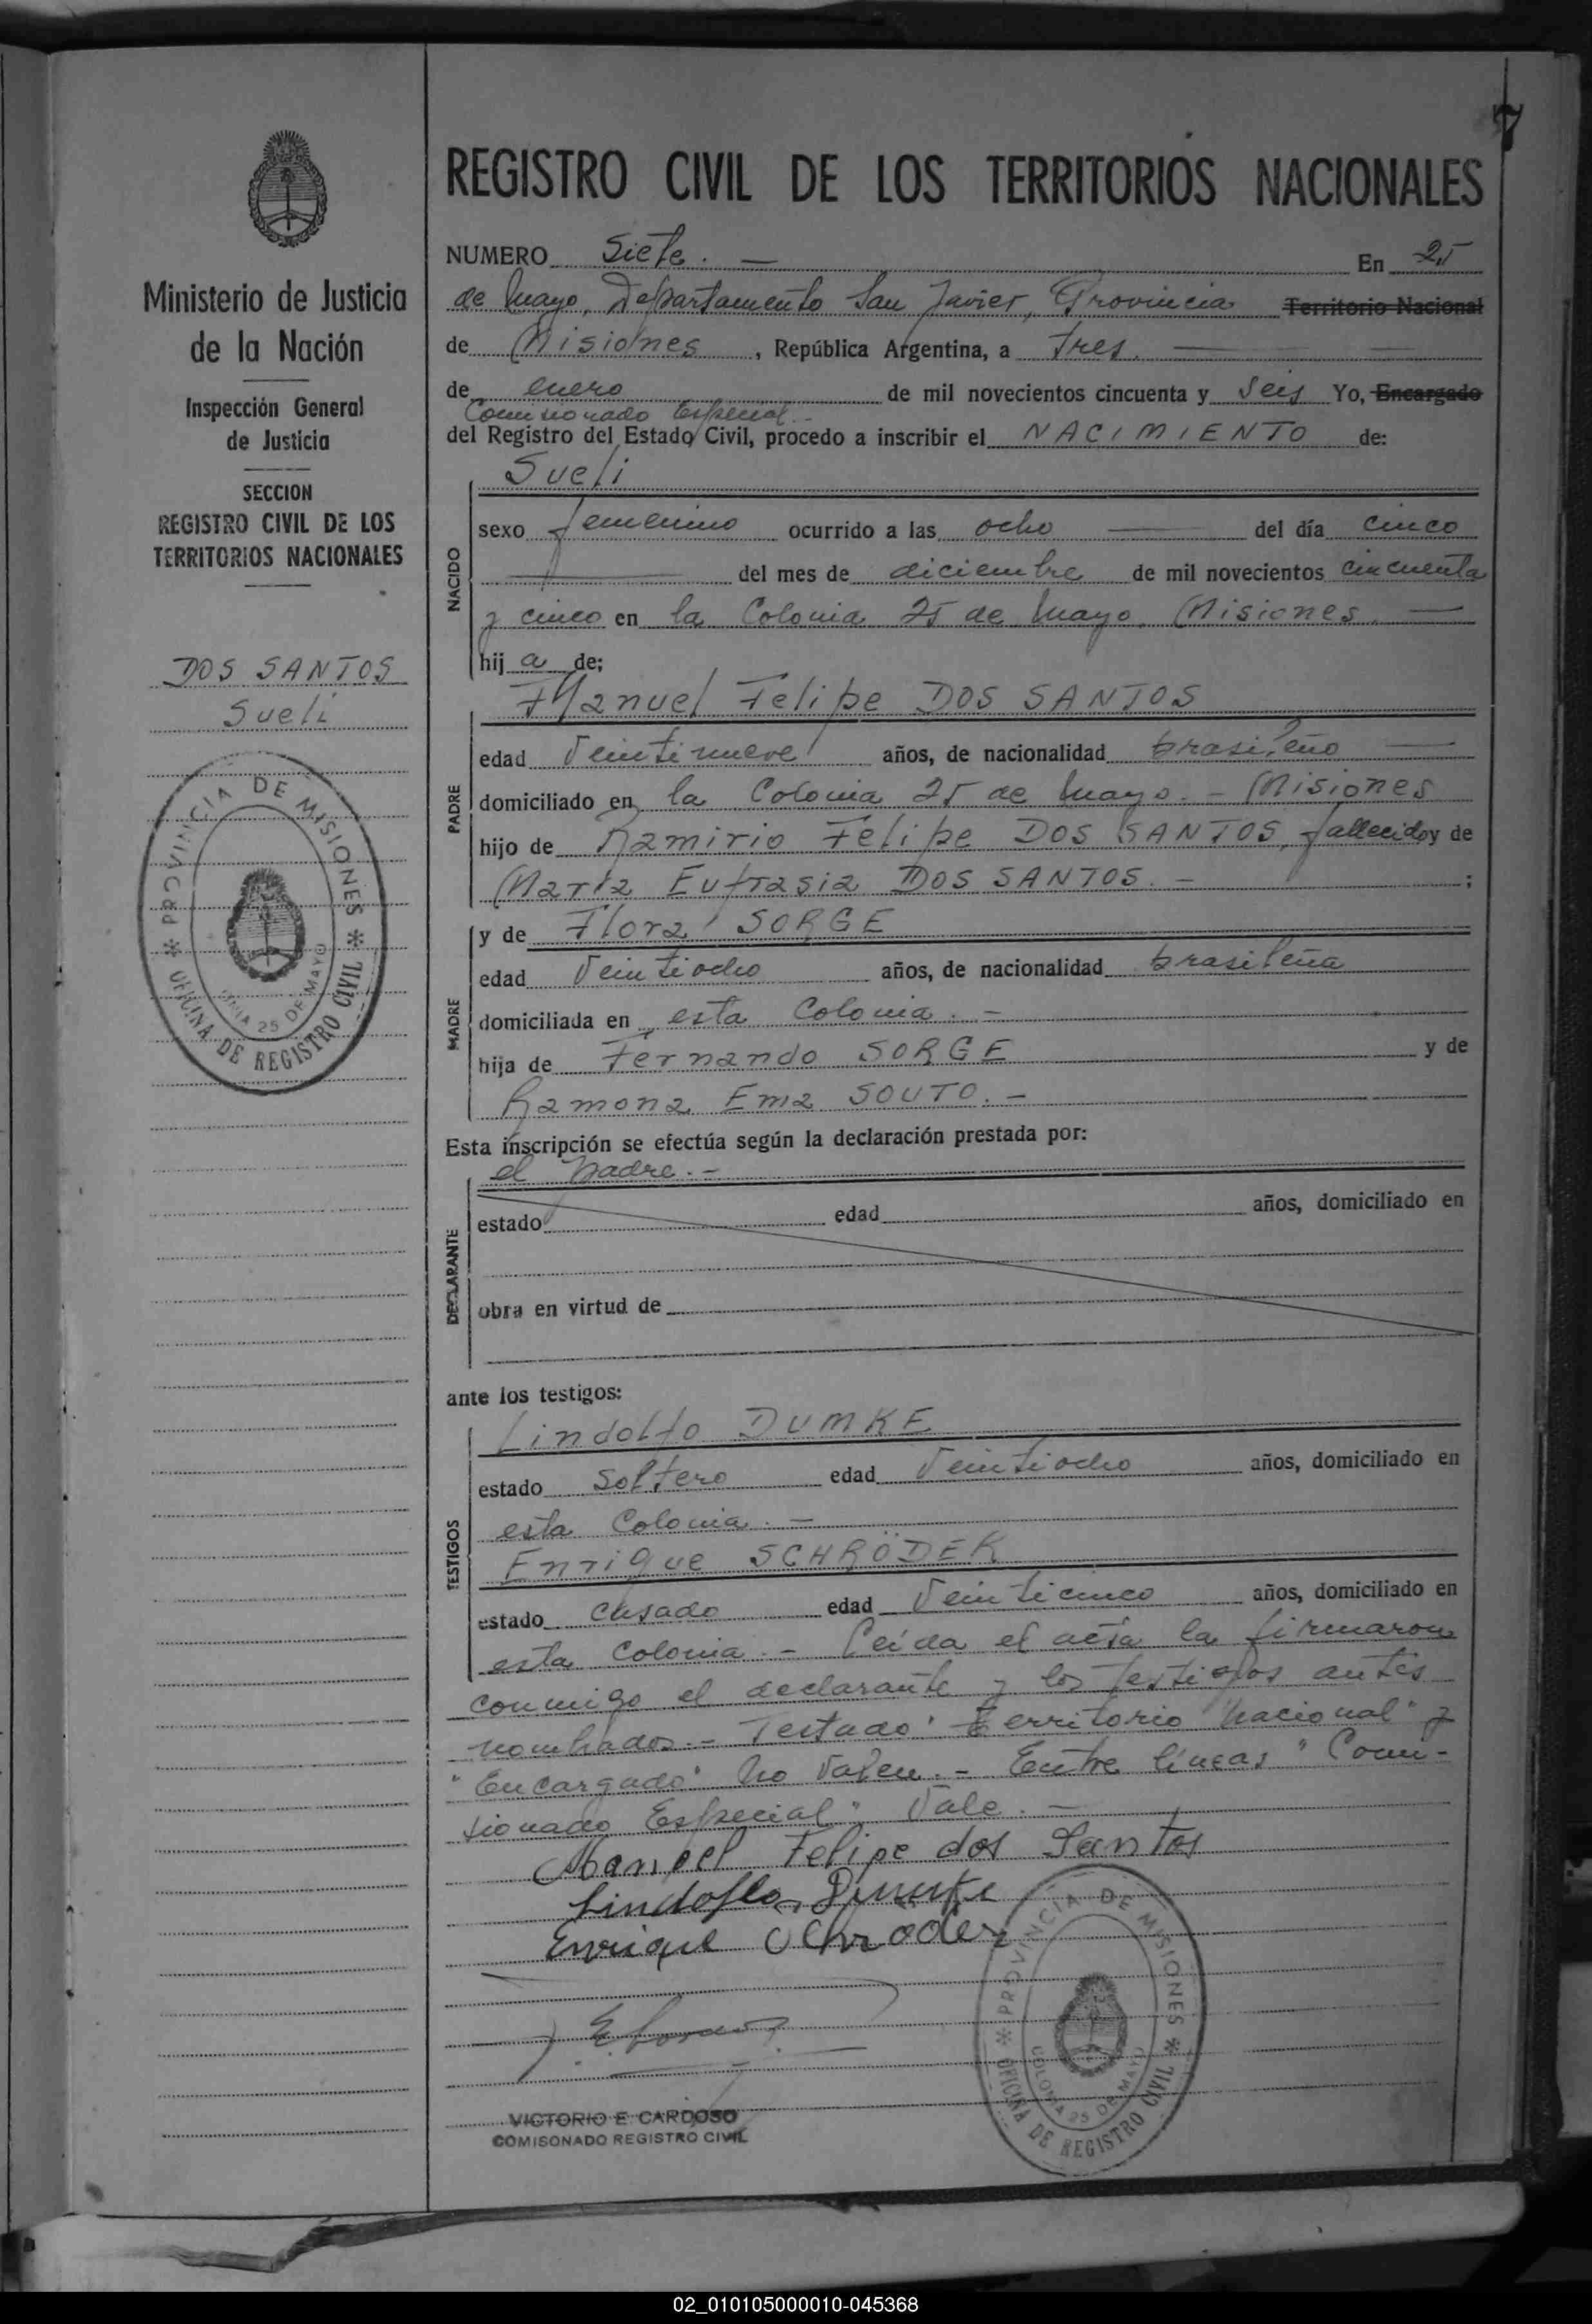 7
REGISTRO CIVIL DE LOS TERRITORIOS NACIONALES
Ministerio de Justicia
de la Nación
Inspección General
de Justicia
SECCION
REGISTRO CIVIL DE LOS
TERRITORIOS NACIONALES
DOS SANTOS
Sueli
PROVINCIA DE MISIONES
COLONIA 25 DE MAYO
OFICINA DE REGISTRO CIVIL
NUMERO Siete. — En 25
de Mayo, Departamento San Javier, Provincia Territorio Nacional
de Misiones, República Argentina, a tres.
de enero de mil novecientos cincuenta y seis Yo, Encargado
Comisionado Especial.-
del Registro del Estado Civil, procedo a inscribir el NACIMIENTO de:
Sueli
NACIDO
sexo femenino ocurrido a las ocho — del día cinco
— del mes de diciembre de mil novecientos cincuenta
y cinco en la Colonia 25 de Mayo, Misiones. —
hij a de;
Manuel Felipe DOS SANTOS
PADRE
edad Veintinueve años, de nacionalidad brasileño —
domiciliado en la Colonia 25 de Mayo. - Misiones
hijo de Ramirio Felipe DOS SANTOS, fallecido y de
Maria Eufrasia DOS SANTOS. - ;
y de Flora SORGE
MADRE
edad Veintiocho años, de nacionalidad brasileña
domiciliada en esta Colonia. -
hija de Fernando SORGE y de
Ramona Ema SOUTO. -
Esta inscripción se efectúa según la declaración prestada por:
el padre. -
DECLARANTE
estado edad años, domiciliado en
obra en virtud de
ante los testigos:
TESTIGOS
Lindolfo DUMKE
estado Soltero edad Veintiocho años, domiciliado en
esta Colonia. -
Enrique SCHRÖDER
estado casado edad Veinticinco años, domiciliado en
esta Colonia. - Leída el acta la firmaron
conmigo el declarante y los testigos antes
nombrados. - Testado: "Territorio Nacional" y
"Encargado" No Valen. - Entre líneas "Comi-
sionado Especial" Vale. -
Manoel Felipe dos Santos
Lindolfo Dumke
Enrique Schröder
PROVINCIA DE MISIONES
COLONIA 25 DE MAYO
OFICINA DE REGISTRO CIVIL
VICTORIO E. CARDOSO
COMISONADO REGISTRO CIVIL
02_010105000010-045368